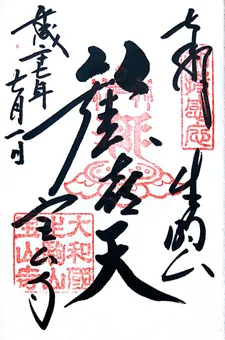 奉拝
生駒山
歡喜天
宝山寺
平成二七年
七月一日
大和國
生駒山
寶山寺